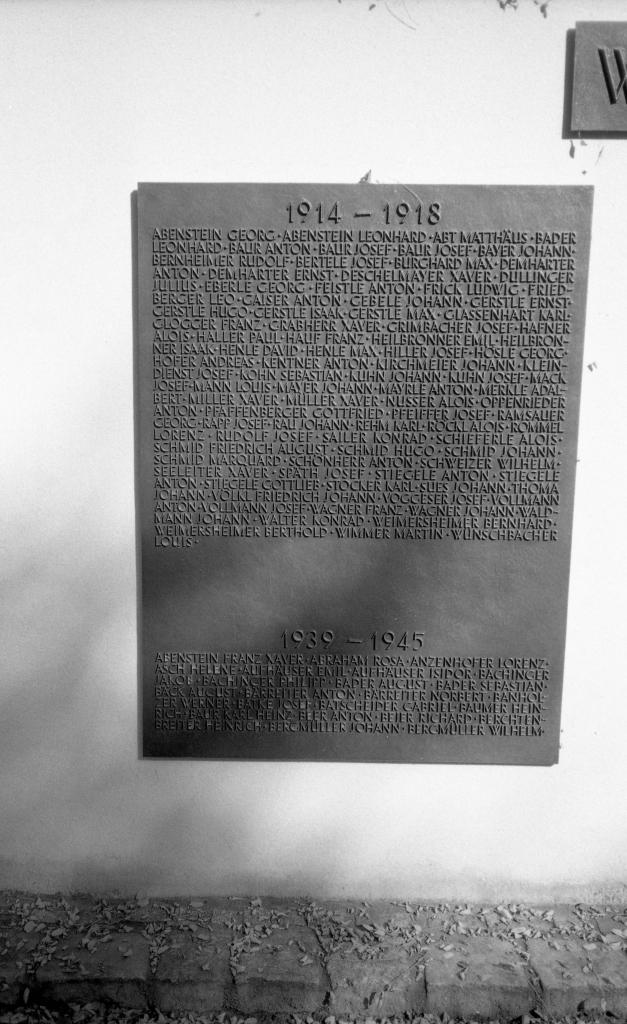 W
1914 – 1918
ABENSTEIN GEORG · ABENSTEIN LEONHARD · ABT MATTHÄUS · BADER
LEONHARD · BAUR ANTON · BAUR JOSEF · BAUR JOSEF · BAYER JOHANN ·
BERNHEIMER RUDOLF · BERTELE JOSEF · BURGHARD MAX · DEMHARTER
ANTON · DEMHARTER ERNST · DESCHELMAYER XAVER · DULLINGER
JULIUS · EBERLE GEORG · FEISTLE ANTON · FRICK LUDWIG · FRIED-
BERGER LEO · GAISER ANTON · GEBELE JOHANN · GERSTLE ERNST ·
GERSTLE HUGO · GERSTLE ISAAK · GERSTLE MAX · GLASSENHART KARL ·
GLOGGER FRANZ · GRABHERR XAVER · GRIMBACHER JOSEF · HAFNER
ALOIS · HALLER PAUL · HAUF FRANZ · HEILBRONNER EMIL · HEILBRON-
NER ISAK · HENLE DAVID · HENLE MAX · HILLER JOSEF · HÖSLE GEORG ·
HOFER ANDREAS · KENTNER ANTON · KIRCHMEIER JOHANN · KLEIN-
DIENST JOSEF · KOHN SEBASTIAN · KUHN JOHANN · KUHN JOSEF · MACK
JOSEF · MANN LOUIS · MAYER JOHANN · MAYRLE ANTON · MERKLE ADAL-
BERT · MILLER XAVER · MÜLLER XAVER · NUSSER ALOIS · OPPENRIEDER
ANTON · PFAFFENBERGER GOTTFRIED · PFEIFFER JOSEF · RAMSAUER
GEORG · RAPP JOSEF · RAU JOHANN · REHM KARL · RÖCKL ALOIS · ROMMEL
LORENZ · RUDOLF JOSEF · SAILER KONRAD · SCHIEFERLE ALOIS ·
SCHMID FRIEDRICH AUGUST · SCHMID HUGO · SCHMID JOHANN ·
SCHMID MARQUARD · SCHÖNHERR ANTON · SCHWEIZER WILHELM ·
SEELEITER XAVER · SPÄTH JOSEF · STIEGELE ANTON · STIEGELE
ANTON · STIEGELE GOTTLIEB · STOCKER KARL · SUES JOHANN · THOMA
JOHANN · VÖLKL FRIEDRICH JOHANN · VOGGESER JOSEF · VOLLMANN
ANTON · VOLLMANN JOSEF · WAGNER FRANZ · WAGNER JOHANN · WALD-
MANN JOHANN · WALTER KONRAD · WEIMERSHEIMER BERNHARD ·
WEIMERSHEIMER BERTHOLD · WIMMER MARTIN · WÜNSCHBACHER
LOUIS ·
1939 – 1945
ABENSTEIN FRANZ XAVER · ABRAHAM ROSA · ANZENHOFER LORENZ ·
ASCH HELENE · AUFHAUSER EMIL · AUFHAUSER ISIDOR · BACHINGER
JAKOB · BACHINGER PHILIPP · BADER AUGUST · BADER SEBASTIAN ·
BÄCK AUGUST · BARREITER ANTON · BARREITER NORBERT · BANHOL-
ZER WERNER · BATKE JOSEF · BATSCHEIDER GABRIEL · BAUMER HEIN-
RICH · BAUR KARL HEINZ · BEER ANTON · BEIER RICHARD · BERCHTEN-
BREITER HEINRICH · BERGMÜLLER JOHANN · BERGMÜLLER WILHELM ·